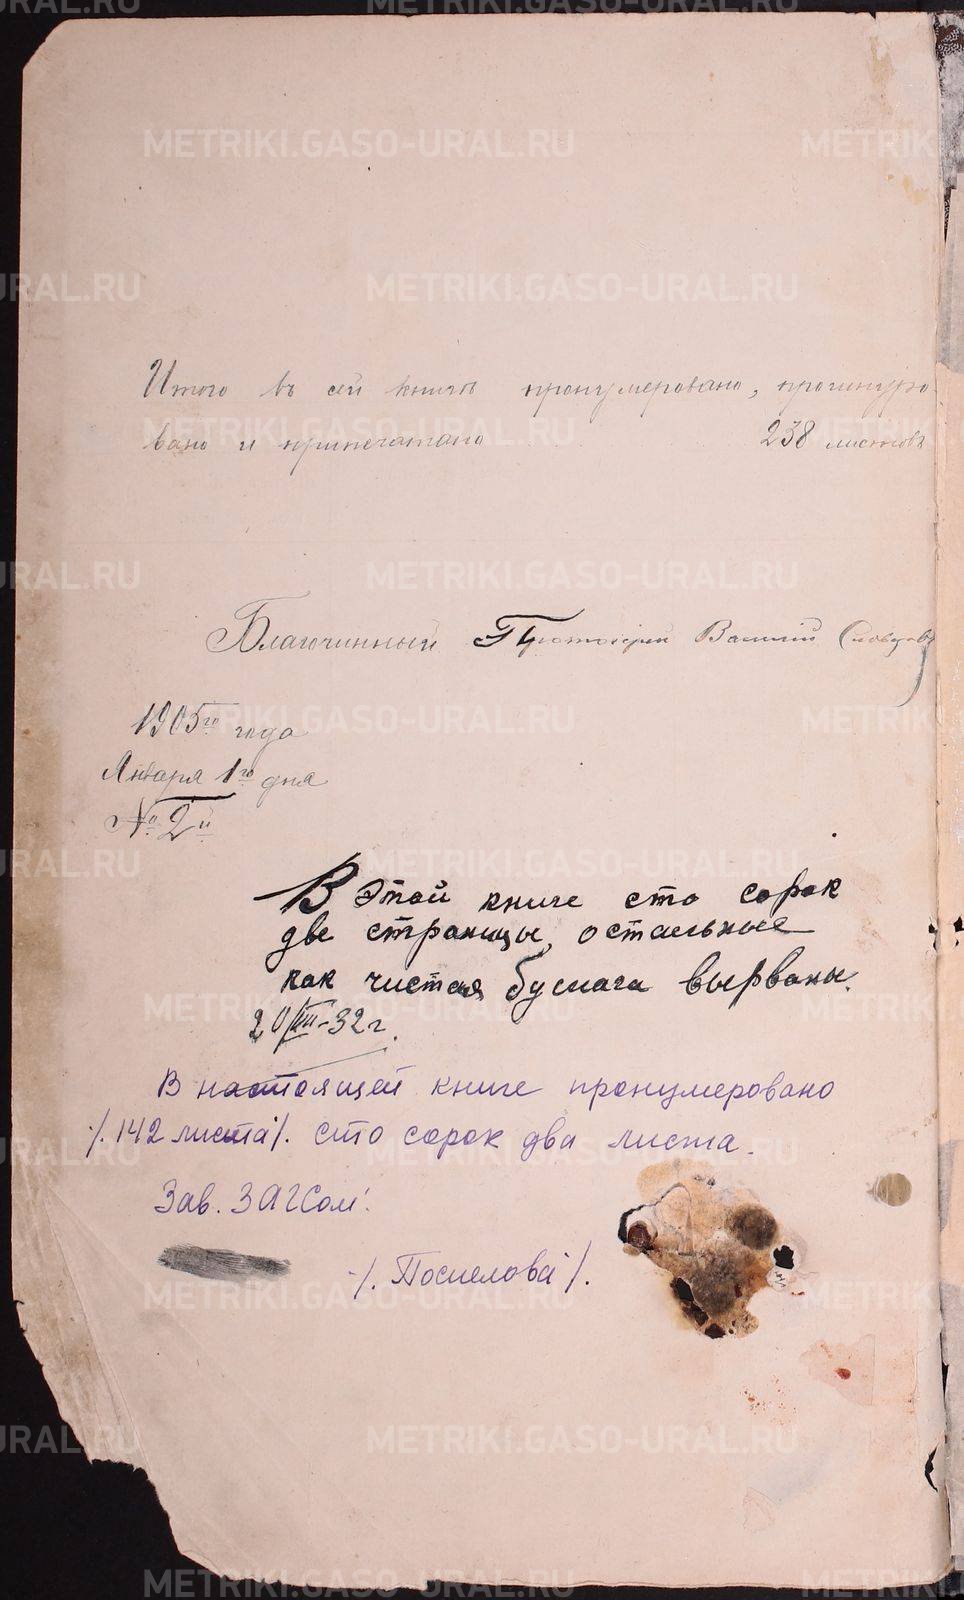 Итого въ сей книгѣ пронумеровано, прошнуро-
вано и припечатано 238 листовъ
Благочинный Протоіерей Василій Словцовъ
1905го года
Января 1го дня
№ 2й
В этой книге сто сорок
две страницы, остальные
как чистая бумага вырваны.
20/VIII-32 г.
В настоящей книге пронумеровано
/. 142 листа /. сто сорок два листа.
Зав. ЗАГСом:
/. Поспелова /.
METRIKI.GASO-URAL.RU